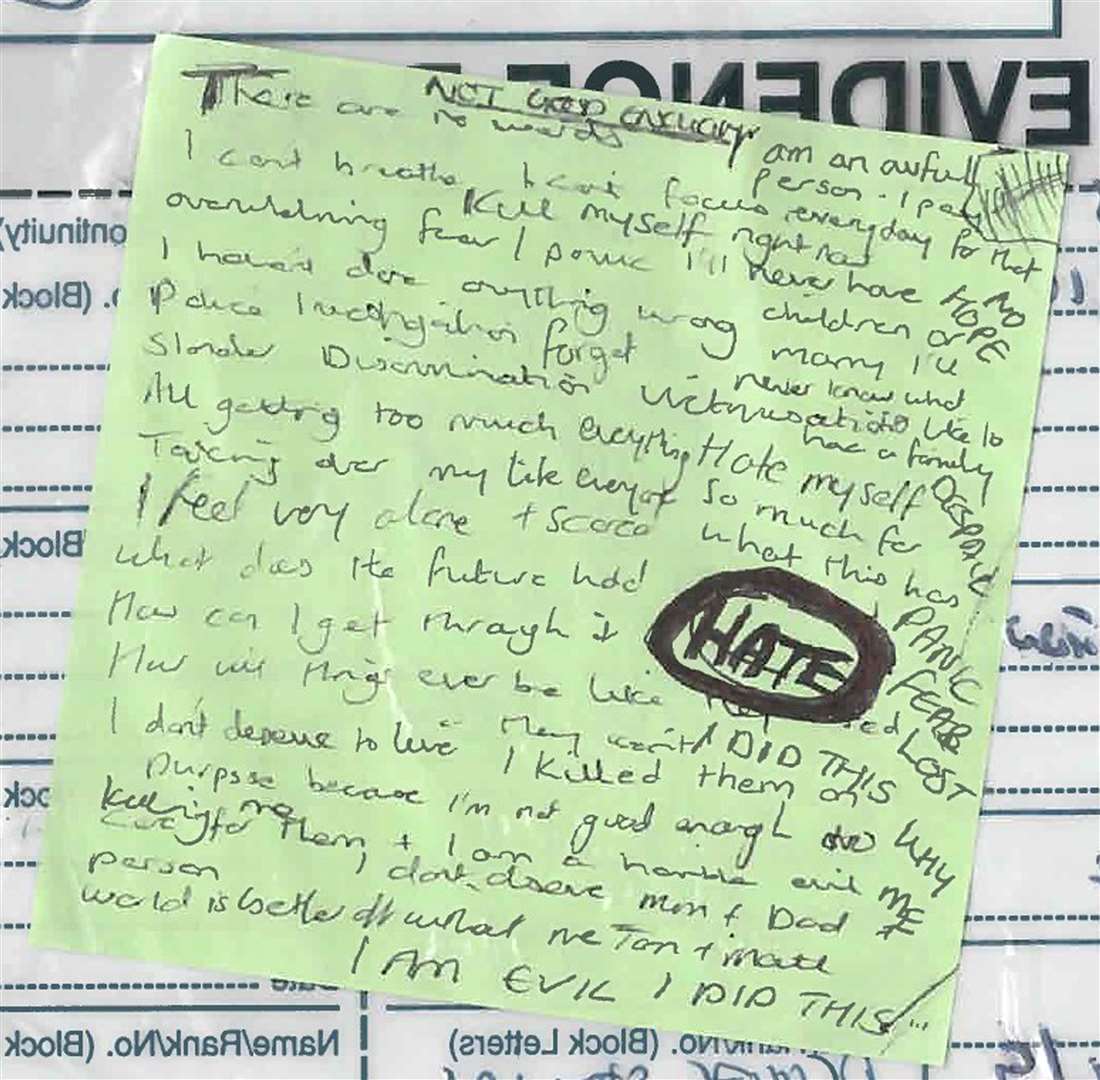 EVIDENCE
NOT GOOD ENOUGH
There are no words
I can't breathe I can't focus
Kill myself right now
overwhelming fear I panic
I haven't done anything wrong
Police Investigation forget
Slander Discrimination Victimisation
All getting too much everything
Taking over my life
I feel very alone + scared
what does the future hold
How can I get through it
How will things ever be like
I don't deserve to live
I killed them on
purpose because I'm not good enough to
care for them + I am a horrible evil
person
killing me
I don't deserve mum + Dad +
world is better off without me Tom + Matt
I AM EVIL I DID THIS
am an awful
person. I pay
everyday for that
I'll never have
children or
marry I'll
never know what
it's like to
have a family
NO
HOPE
Hate myself
so much for
what this has
HATE
I DID THIS
DESPAIR
PANIC
FEAR
LOST
WHY
ME
(Block
Block
Name/Rank/No. (Block
Rank/No. (Block Letters)